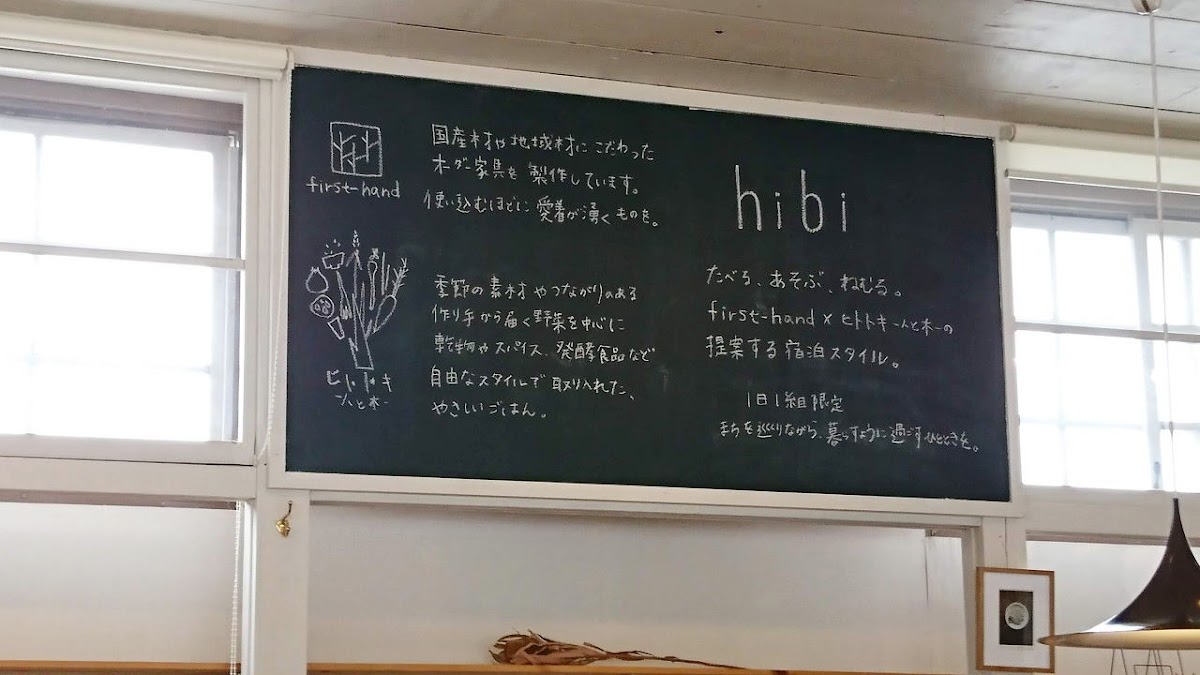 first-hand
国産材や地域材にこだわった
オーダー家具を製作しています。
使い込むほどに愛着が湧くものを。
ヒトトキ
-人と木-
季節の素材やつながりのある
作り手から届く野菜を中心に
乾物やスパイス、発酵食品など
自由なスタイルで取り入れた、
やさしいごはん。
hibi
たべる、あそぶ、ねむる。
first-hand × ヒトトキ-人と木-の
提案する宿泊スタイル。
1日1組限定
まちを巡りながら、暮らすように過ごすひとときを。